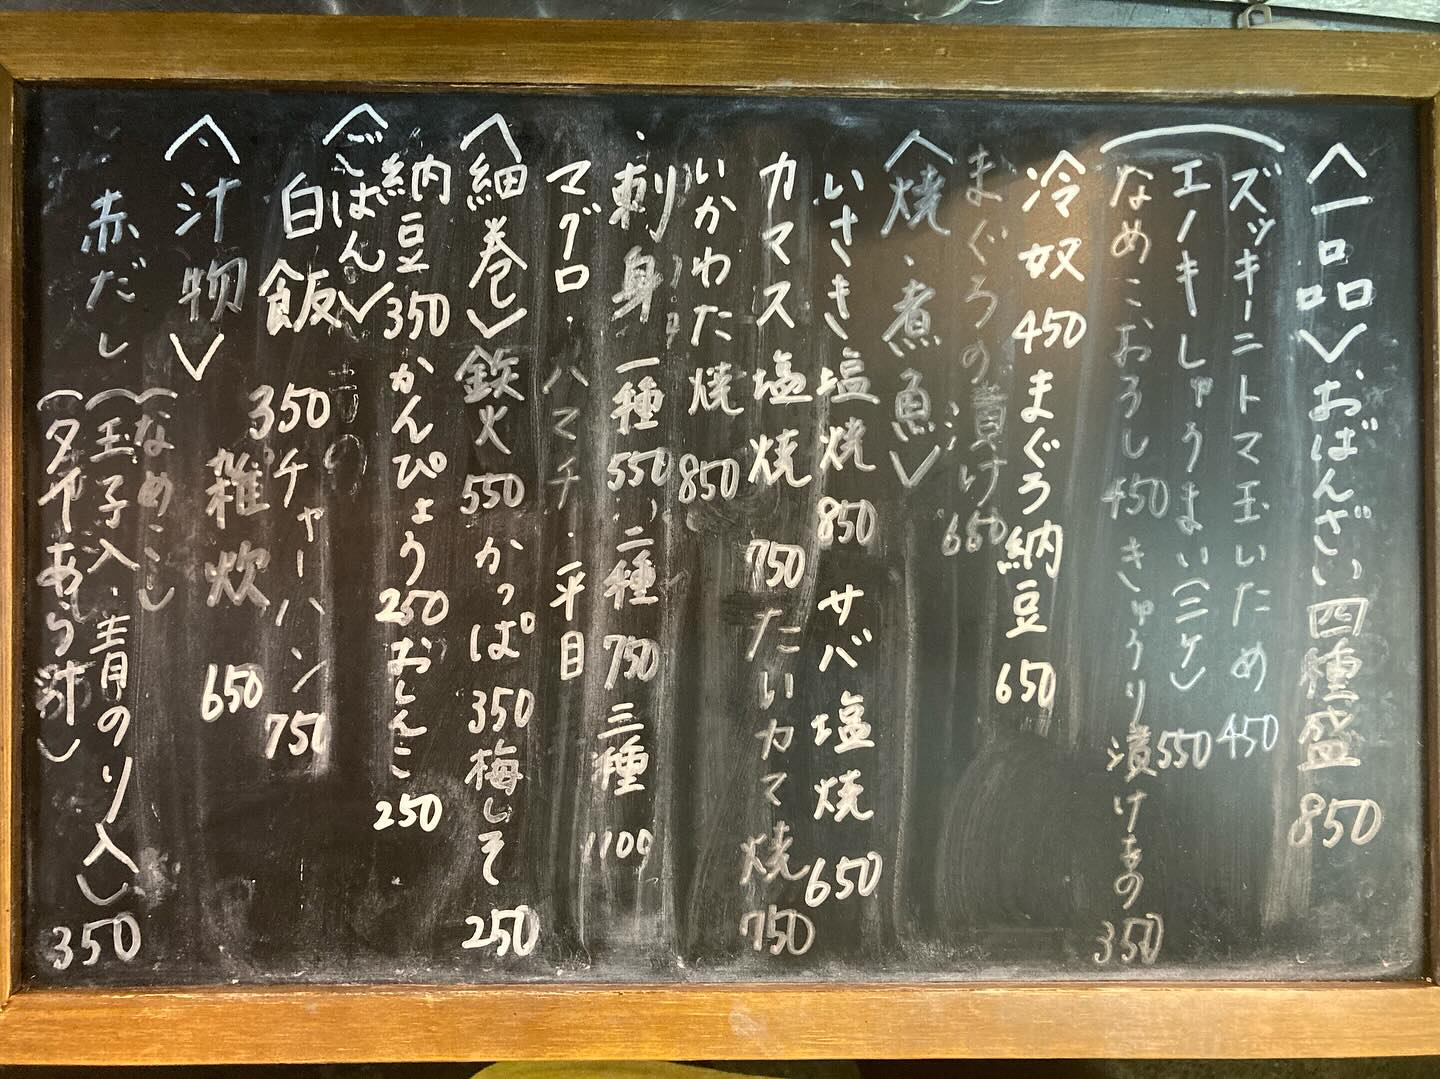 〈一品〉おばんざい四種盛 850
ズッキーニトマト玉いため 450
エノキしゅうまい(三ケ) 550
なめこおろし 450 きゅうり漬けもの 350
冷奴 450 まぐろ納豆 650
まぐろの漬け 650
〈焼・煮魚〉
いさき塩焼 850 サバ塩焼 650
カマス塩焼 750 たいカマ焼 750
いかわた焼 850
・刺身 一種 550、二種 750 三種 1100
マグロ・ハマチ・平目
〈細巻〉鉄火 550 かっぱ 350 梅しそ 250
納豆 350 かんぴょう 250 おしんこ 250
〈ごはん〉
白飯 350 チャーハン 750
雑炊 650
〈汁物〉
赤だし
(なめこ汁)
(玉子入・青のり入) 350
(タイあら汁)